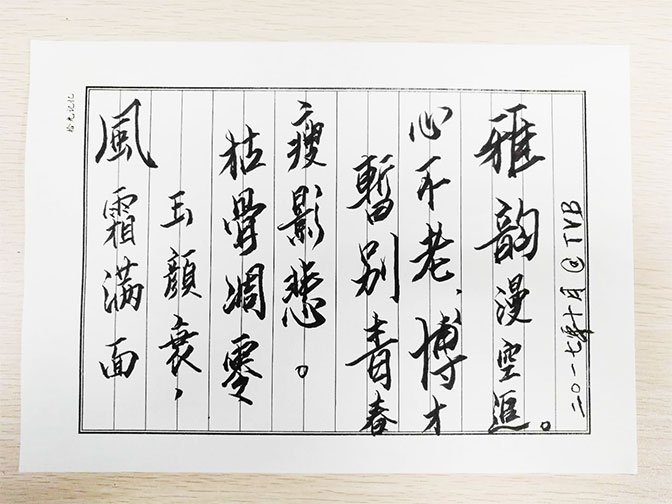 拾光记忆
風霜滿面
玉顏衰，
枯骨凋零
瘦影悲。
暫别青春
心不老、博才
雅韵漫空追。
二〇一七年十月@TVB